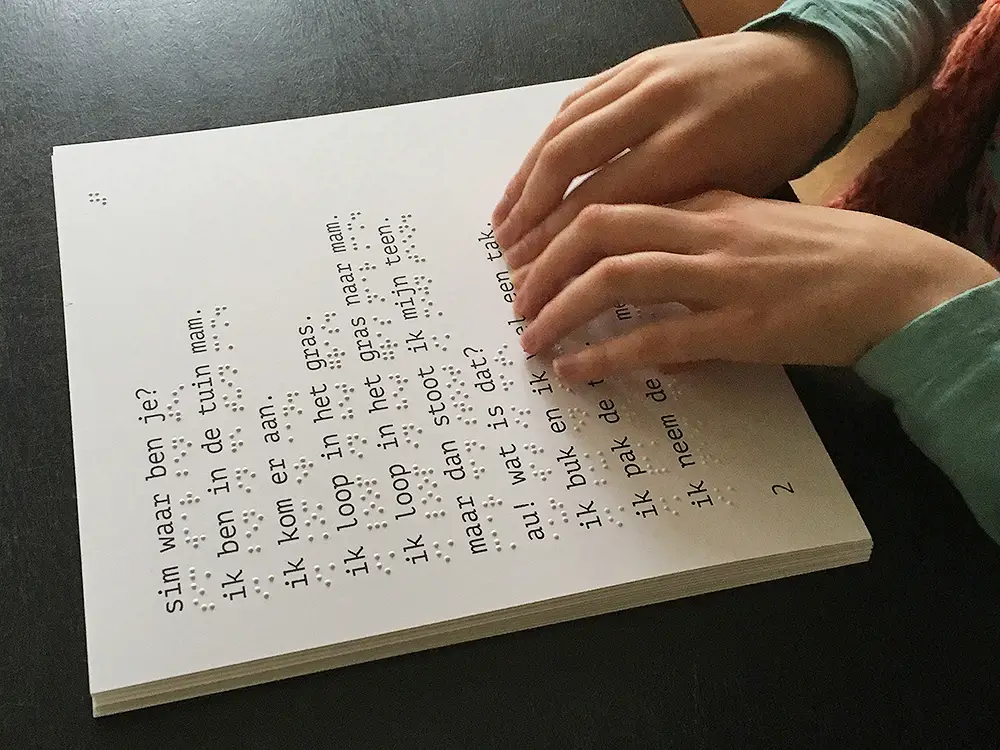 sim waar ben je?
ik ben in de tuin mam.
ik kom er aan.
ik loop in het gras.
ik loop in het gras naar mam.
maar dan stoot ik mijn teen.
au! wat is dat?
ik buk en ik een tak.
ik pak de
ik neem de
2